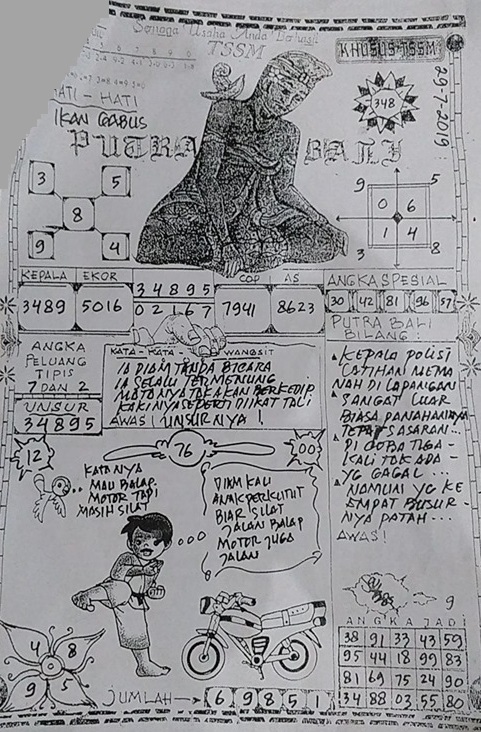 Semoga Usaha Anda Berhasil
TSSM
KHUSUS TSSM
29-7-2019
348
ATI - HATI
IKAN GABUS
PUTRA BALI
3 5
8
9 4
9 5
0 6
1 4
3 8
KEPALA EKOR
3489 5016
3 4 8 9 5
0 2 1 6 7
COP AS
7941 8623
ANGKA SPESIAL
30 42 81 96 57
ANGKA
PELUANG
TIPIS
7 DAN 2
UNSUR
34895
KATA - KATA WANGSIT
IA DIAM TANDA BICARA
IA SELALU TERMENUNG
MATANYA TAK AKAN BERKEDIP
KAKINYA SEPERTI DIIKAT TALI
AWAS! UNSURNYA!
PUTRA BALI
BILANG:
KEPALA POLISI
LATIHAN MEMA
NAH DI LAPANGAN
SANGAT LUAR
BIASA PANAHANNYA
TEPAT SASARAN...
DI COBA TIGA-
KALI TAK ADA-
YG GAGAL...
NAMUN YG KE
EMPAT BUSUR-
NYA PATAH...
AWAS!
12
76
00
KATANYA
MAU BALAP
MOTOR TAPI
MASIH SILAT
DIAM KAU
ANAK PERKUTUT
BIAR SILAT
JALAN BALAP
MOTOR JUGA
JALAN
9
ANGKA JADI
38 91 33 43 59
95 44 18 99 83
81 69 75 24 90
34 88 03 55 80
4 8
9 5
JUMLAH 6 9 8 5 1